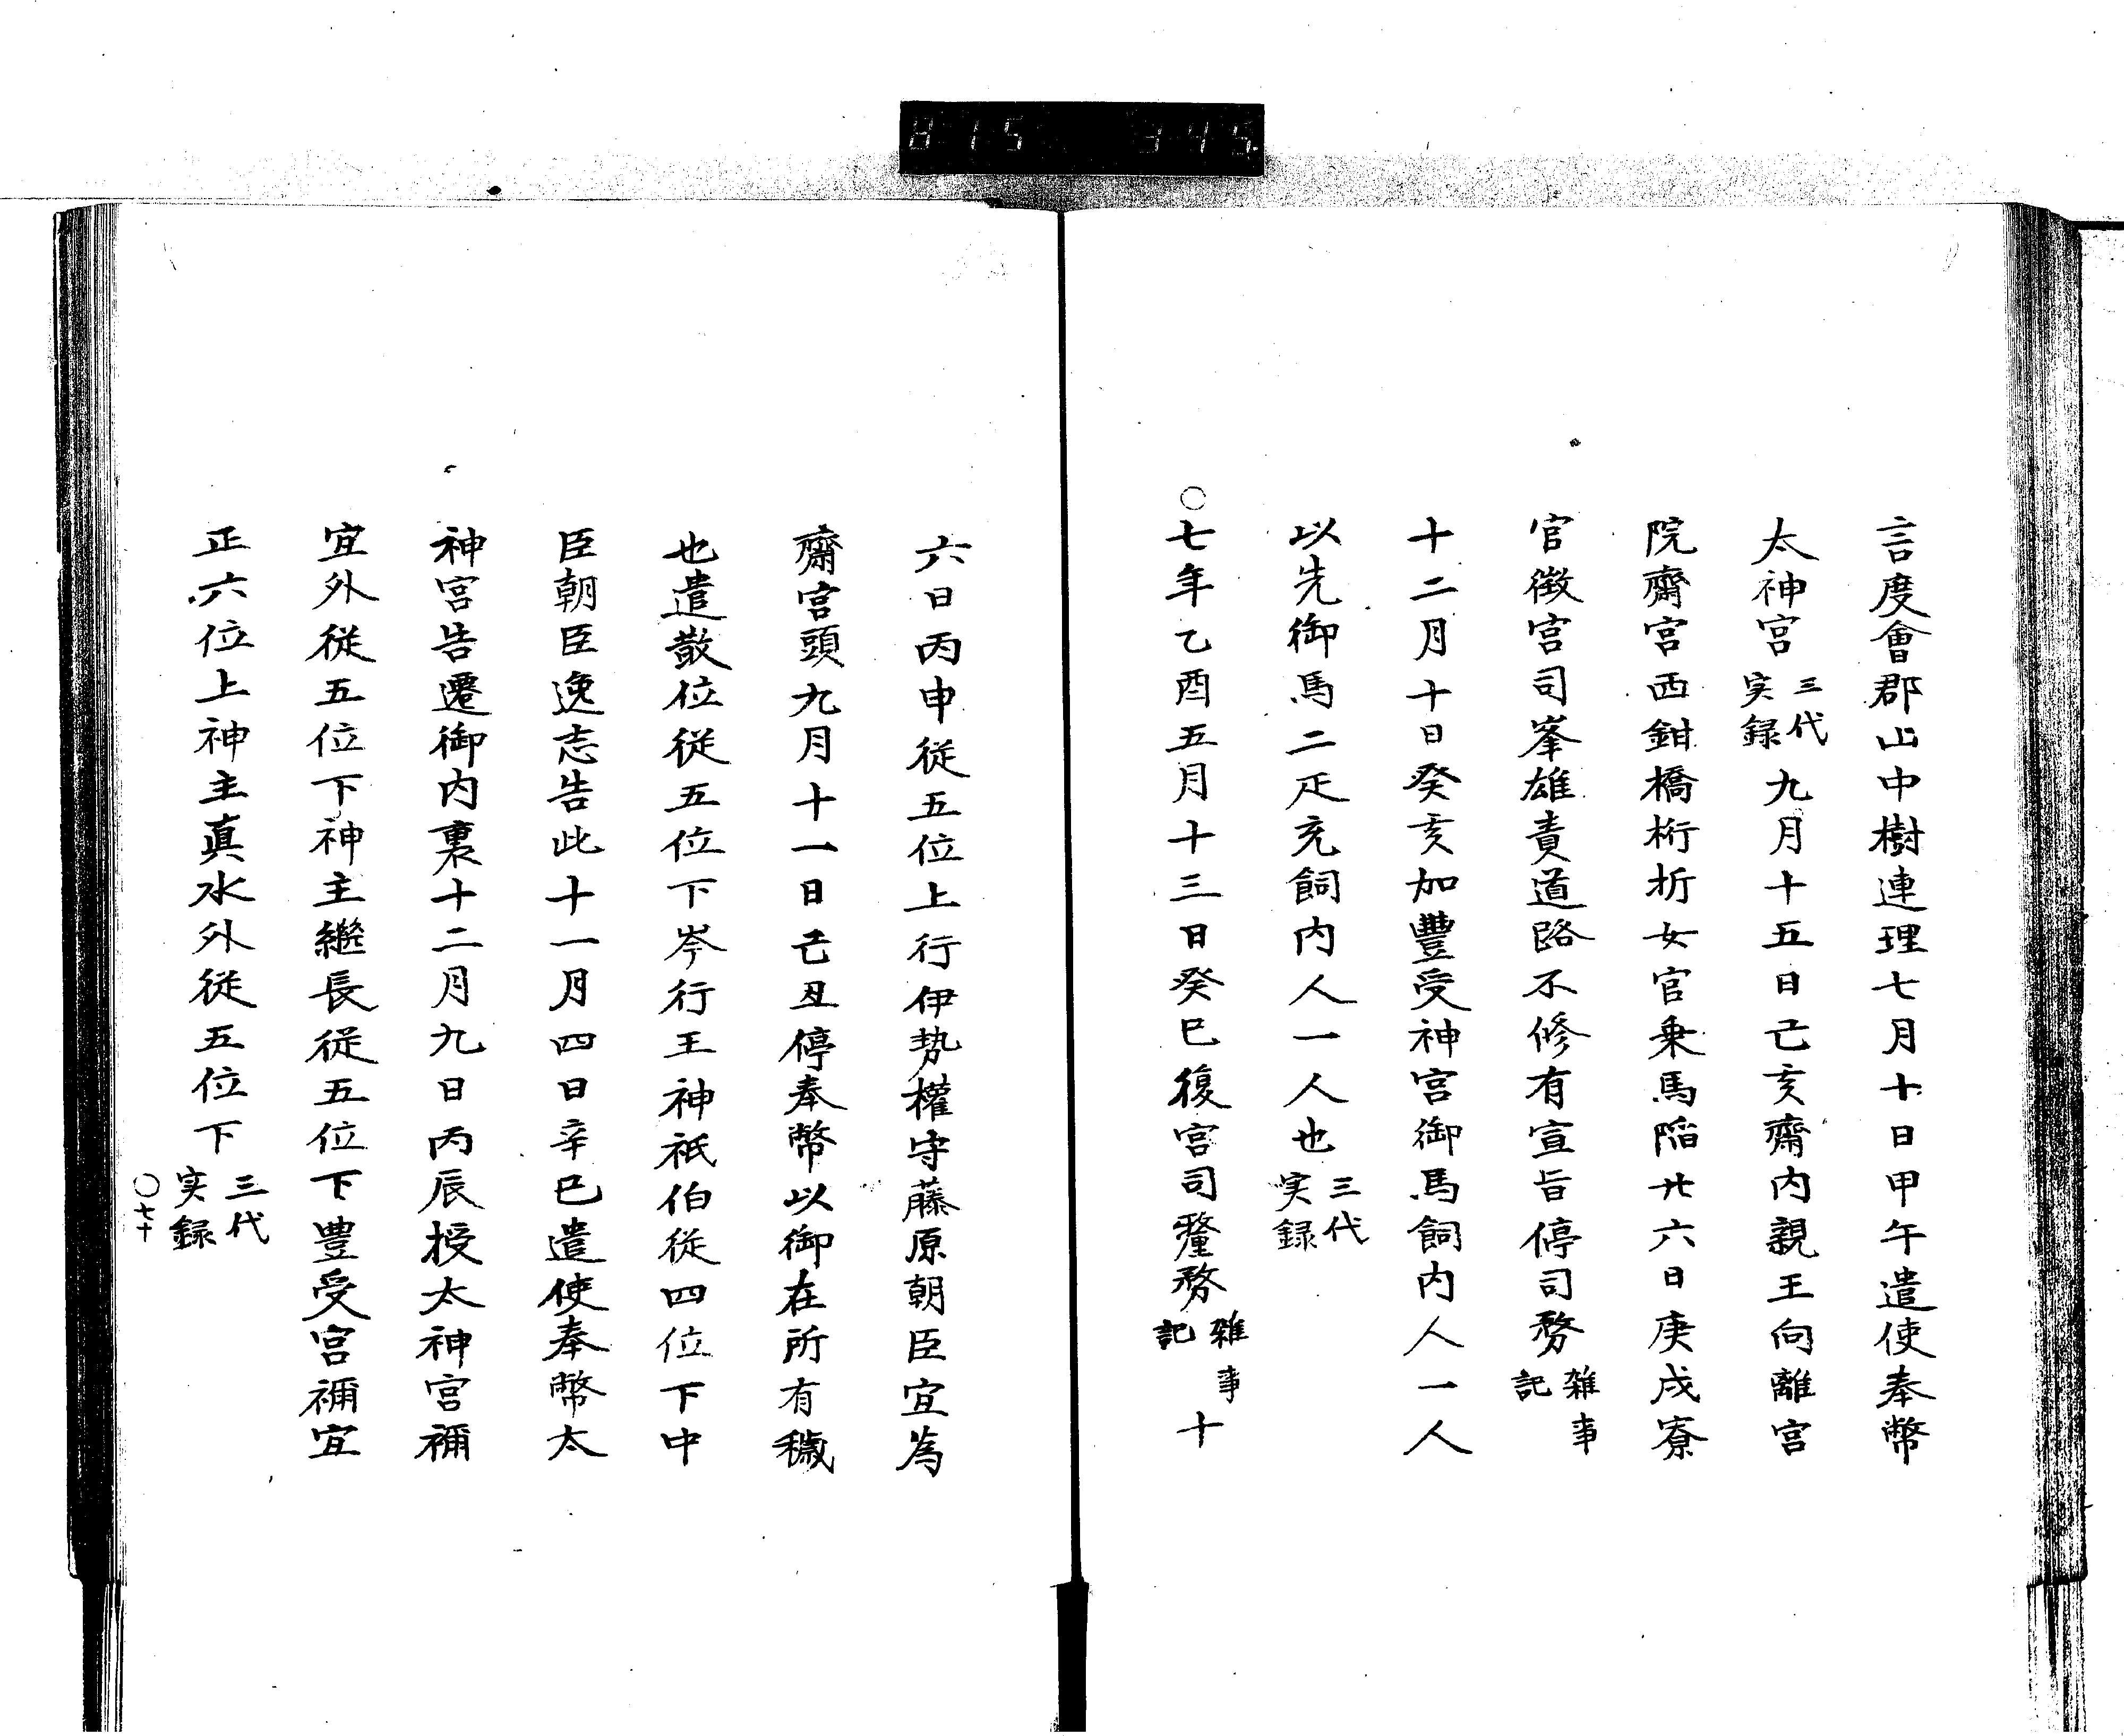 815 345
言度會郡山中樹連理七月十日甲午遣使奉幣
太神宮三代実録九月十五日己亥齋内親王向離宮
院齋宮西鉗橋桁折女官乗馬陥廿六日庚戌寮
官徴宮司峯雄責道路不修有宣旨停司務雑事記
十二月十日癸亥加豐受神宮御馬飼内人一人
以先御馬二疋充飼内人一人也三代実録
○七年乙酉五月十三日癸巳復宮司釐務雑事記十
六日丙申従五位上行伊勢權守藤原朝臣宜為
齋宮頭九月十一日己丑停奉幣以御在所有穢
也遣散位従五位下岑行王神祇伯従四位下中
臣朝臣逸志告此十一月四日辛巳遣使奉幣太
神宮告遷御内裏十二月九日丙辰授太神宮禰
宜外従五位下神主繼長従五位下豊受宮禰宜
正六位上神主真水外従五位下三代実録
○七十